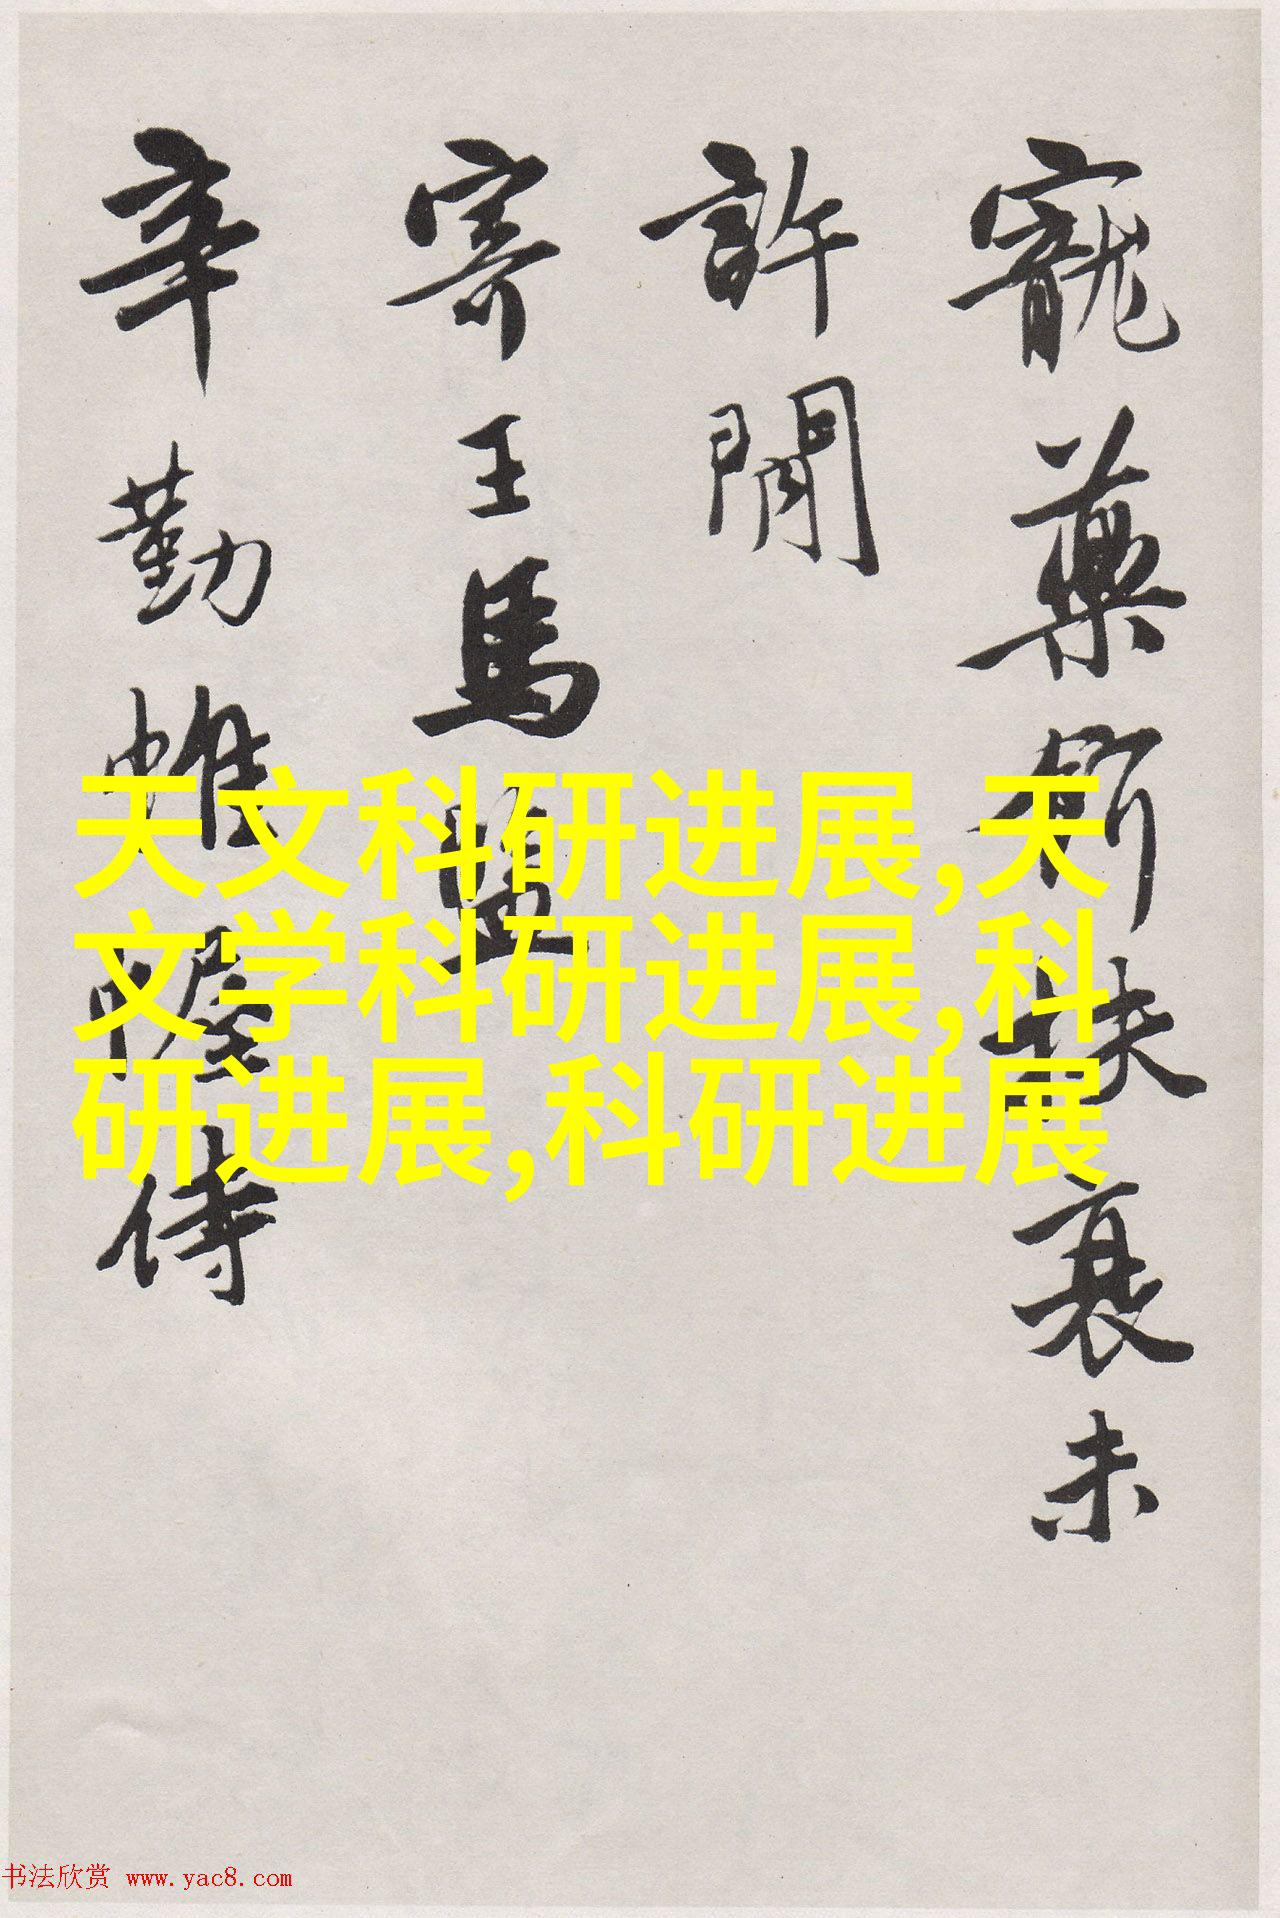 寵藥俯扶衰未
許閒
寄王馬盟
辛勤帷幄侍
天文科研进展,天
文学科研进展,科
研进展,科研进展
书法欣赏 www.yac8.com